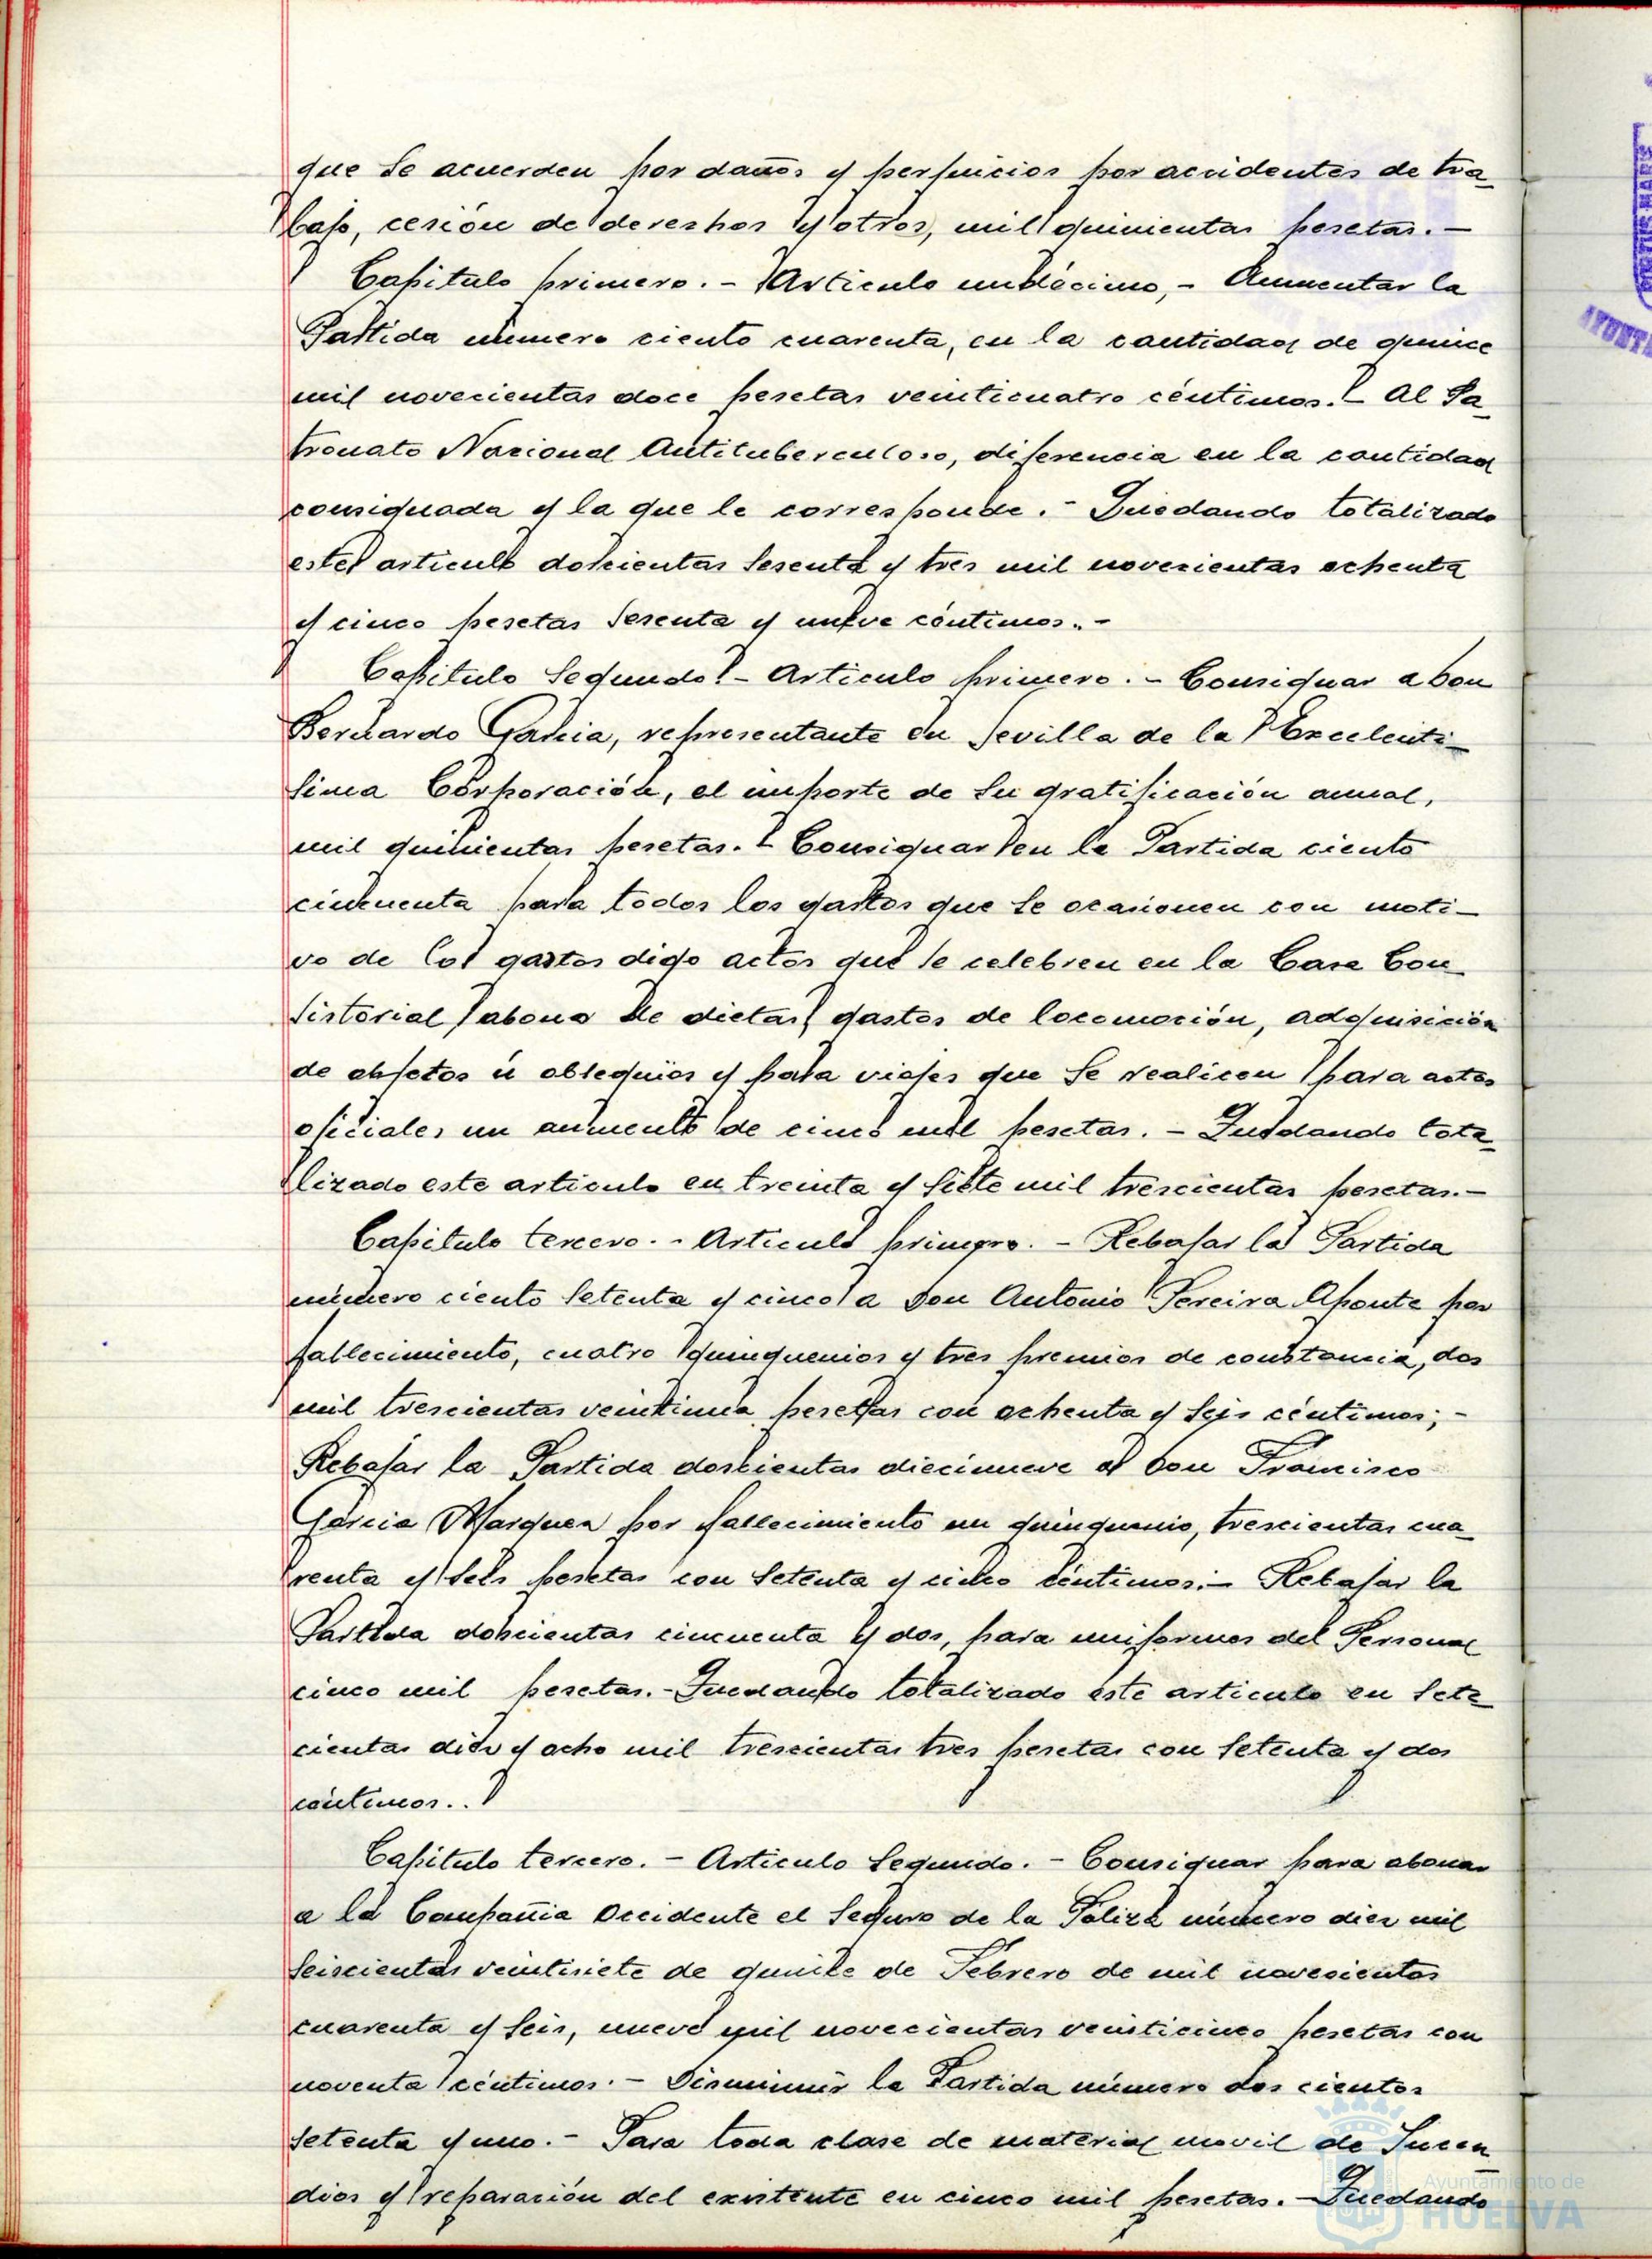 que se acuerden por daños y perjuicios por accidentes de tra-
bajo, cesión de derechos y otros, mil quinientas pesetas.-
Capitulo primero.- Articulo undécimo,- Aumentar la
Partida número ciento cuarenta, en la cantidad de quince
mil novecientas doce pesetas veinticuatro céntimos.- Al Pa-
tronato Nacional Antituberculoso, diferencia en la cantidad
consignada y la que le corresponde.- Quedando totalizado
este articulo doscientas sesenta y tres mil novecientas ochenta
y cinco pesetas sesenta y nueve céntimos.-
Capitulo segundo.- Articulo primero.- Consignar a Don
Bernardo Garcia, representante en Sevilla de la Excelenti-
sima Corporación, el importe de su gratificación anual,
mil quinientas pesetas.- Consignar en la Partida ciento
cincuenta para todos los gastos que se ocasionen con moti-
vo de los gastos digo actos que se celebren en la Casa Con-
sistorial, abono de dietas, gastos de locomoción, adquisición
de objetos ú obsequios y para viajes que se realicen para actos
oficiales un aumento de cinco mil pesetas.- Quedando tota-
lizado este articulo en treinta y siete mil trescientas pesetas.-
Capitulo tercero.- Articulo primero.- Rebajar la Partida
número ciento setenta y cinco a Don Antonio Pereira Aponte por
fallecimiento, cuatro quinquenios y tres premios de constancia, dos
mil trescientas veintiuna pesetas con ochenta y seis céntimos;-
Rebajar la Partida doscientas diecinueve a Don Francisco
Garcia Marquez por fallecimiento un quinquenio, trescientas cua-
renta y seis pesetas con setenta y cinco céntimos:- Rebajar la
Partida doscientas cincuenta y dos, para uniformes del Personal
cinco mil pesetas.- Quedando totalizado este articulo en sete-
cientas diez y ocho mil trescientas tres pesetas con setenta y dos
céntimos..
Capitulo tercero.- Articulo segundo.- Consignar para abonar
a la Compañia Occidente el Seguro de la Póliza número diez mil
seiscientas veintisiete de quince de Febrero de mil novecientos
cuarenta y seis, nueve mil novecientas veinticinco pesetas con
noventa céntimos.- Disminuir la Partida número dos cientos
setenta y uno.- Para toda clase de material movil de Incen-
dios y reparación del existente en cinco mil pesetas.- Quedando
Ayuntamiento de
HUELVA